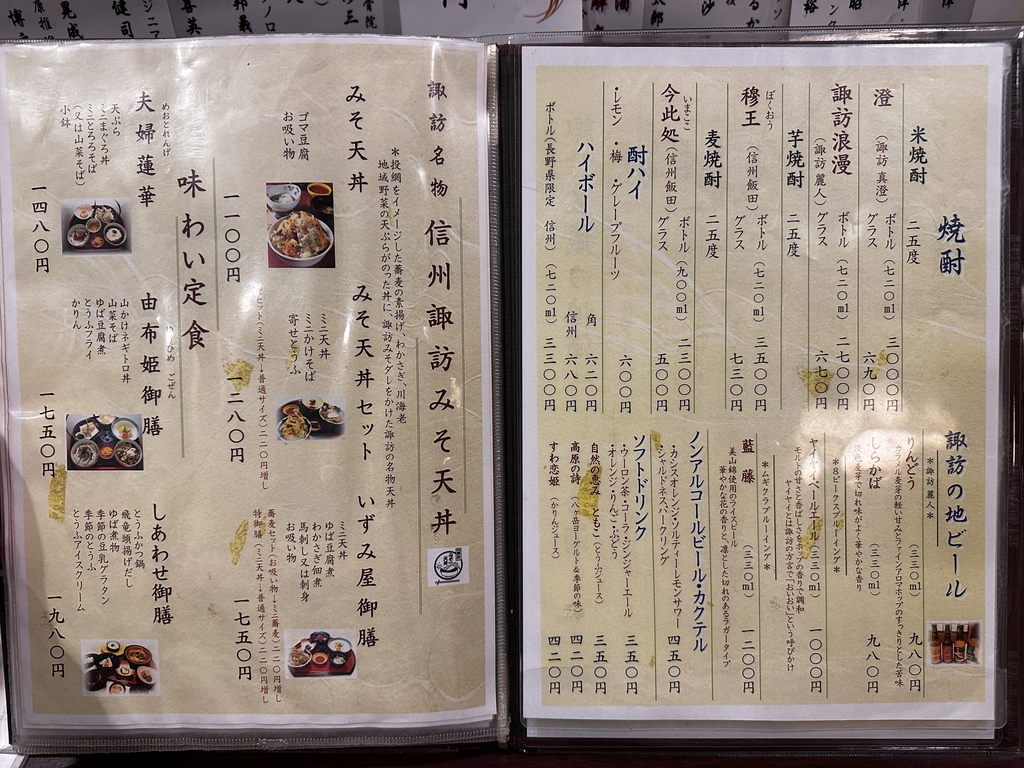 焼酎
米焼酎 二五度
澄 (諏訪 真澄) ボトル (七二〇ml) 三〇〇〇円
グラス 六九〇円
諏訪浪漫 (諏訪 麗人) ボトル (七二〇ml) 二七〇〇円
グラス 六七〇円
芋焼酎 二五度
ぼくおう
穆王 (信州飯田) ボトル (七二〇ml) 三五〇〇円
グラス 七三〇円
麦焼酎 二五度
いまここ
今此処 (信州飯田) ボトル (九〇〇ml) 二三〇〇円
グラス 五〇〇円
酎ハイ
・レモン ・梅 ・グレープフルーツ 六〇〇円
ハイボール
角 六二〇円
信州 六八〇円
ボトル(長野県限定 信州) (七二〇ml) 三三〇〇円
諏訪の地ビール
*諏訪麗人*
りんどう (三三〇ml) 九八〇円
カラメル麦芽の軽い甘みとファインアロマホップのすっきりとした苦味
しらかば (三三〇ml) 九八〇円
淡色麦芽で切れ味がよく華やかな香り
*8ピークスブルーイング*
ヤイヤイペールエール (三三〇ml) 一〇〇〇円
モルトの甘さと香ばしさをホップの香りで調和
ヤイヤイとは諏訪の方言で「おいおい」という呼びかけ
*ムギクラブルーイング*
藍藤 (三三〇ml) 一二〇〇円
美山錦使用のライスビール
華やかな花の香りと、凛とした切れのあるラガータイプ
ノンアルコールビール・カクテル
・カシスオレンジ・ソルティーレモンサワー
・シャルドネスパークリング 四五〇円
ソフトドリンク
・ウーロン茶・コーラ・ジンジャーエール 三五〇円
・オレンジ・りんご・ぶどう 三五〇円
自然の恵み ともこ (とうふジュース)
高原の詩 (八ヶ岳ヨーグルト&季節の味) 四二〇円
すわ恋姫 (かりんジュース) 四二〇円
諏訪名物 信州諏訪みそ天丼
*投網をイメージした蕎麦の素揚げ、わかさぎ、川海老
地域野菜の天ぷらがのった丼に、諏訪みそダレをかけた諏訪の名物天丼
みそ天丼
ゴマ豆腐
お吸い物
一一〇〇円
みそ天丼セット
ミニ天丼
ミニかけそば
寄せとうふ
一二八〇円
セット(ミニ天丼→普通サイズ)二二〇円増し
いずみ屋御膳
ミニ天丼
ゆば豆腐煮
わかさぎ佃煮
馬刺し又は刺身
お吸い物
一七五〇円
蕎麦セット(お吸い物→ミニ蕎麦)二二〇円増し
特御膳 (ミニ天丼→普通サイズ)二二〇円増し
味わい定食
めおとれんげ
夫婦蓮華
天ぷら
ミニまぐろ丼
ミニとろろそば
(又は山菜そば)
小鉢
一四八〇円
ひめ ごぜん
由布姫御膳
山かけネギトロ丼
山菜そば
ゆば豆腐煮
とうふフライ
かりん
一七五〇円
しあわせ御膳
とうふかつ鍋
飛竜頭揚げだし
ゆば煮物
季節の豆乳グラタン
季節のとうふ
とうふアイスクリーム
一九八〇円